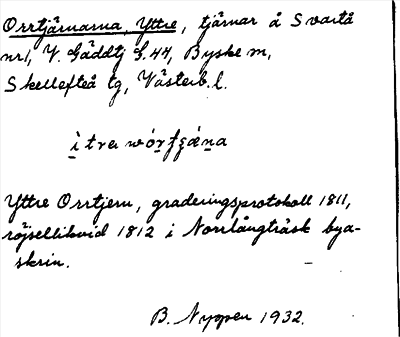 Orrtjärnarna, Yttre, tjärnar å Svartå
nr 1, V. Gäddtj S. 44, Byske sn,
Skellefteå tg, Västerb. l.
Yttre Orrtjern, graderingsprotokoll 1811,
röjsellikvid 1812 i Norrlångträsk bya-
skrin.
B. Nygren 1932.